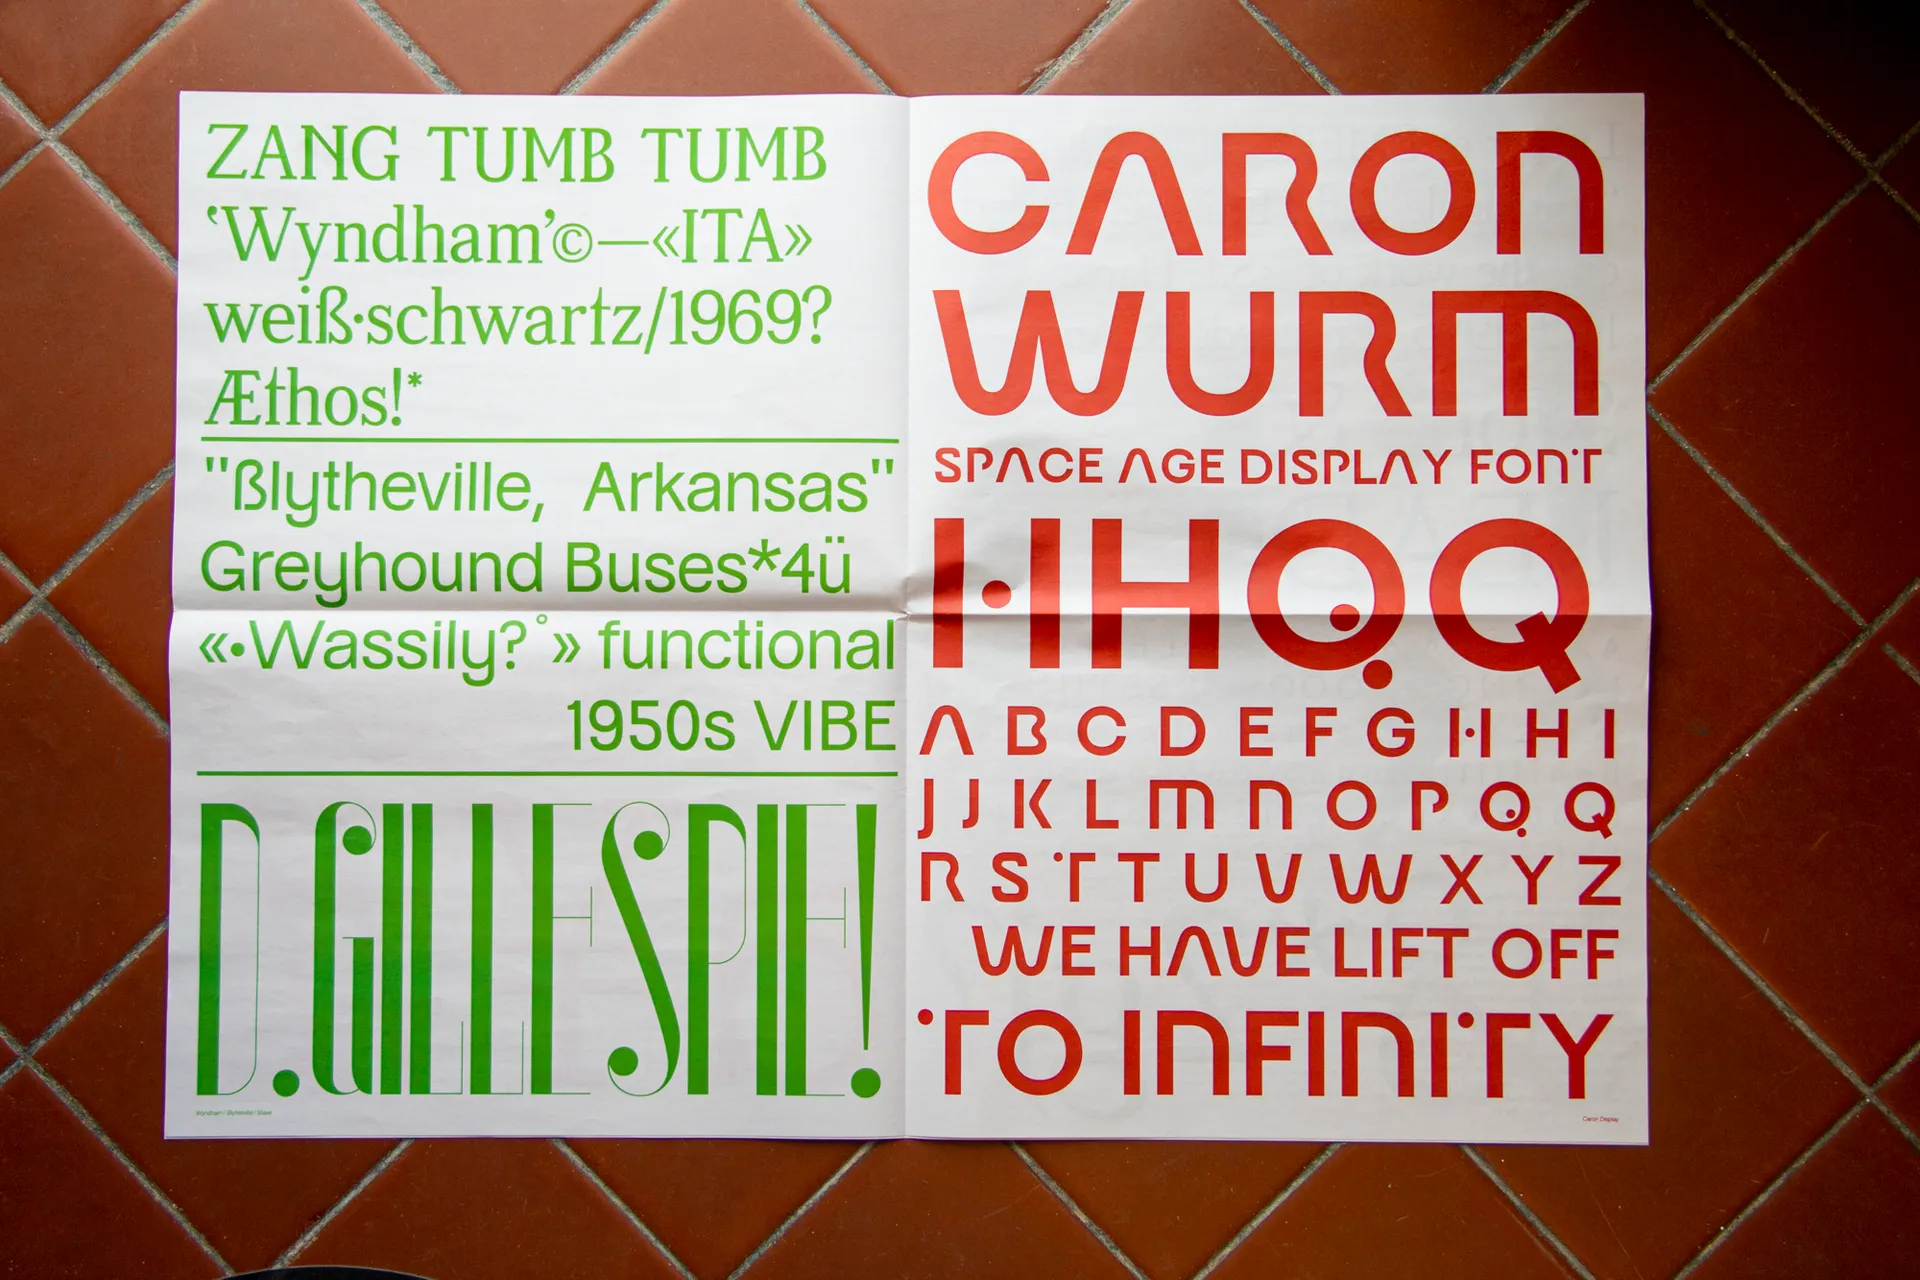 ZANG TUMB TUMB
‘Wyndham’©—«ITA»
weiß·schwartz/1969?
Æthos!*
"Blytheville, Arkansas"
Greyhound Buses*4ü
«•Wassily?°» functional
1950s VIBE
D.GILLESPIE!
Wyndham / Blytheville / Skaye
CARON
WURM
SPACE AGE DISPLAY FONT
HHQQ
A B C D E F G H H I
J J K L M N O P Q Q
R S T T U V W X Y Z
WE HAVE LIFT OFF
TO INFINITY
Caron Display